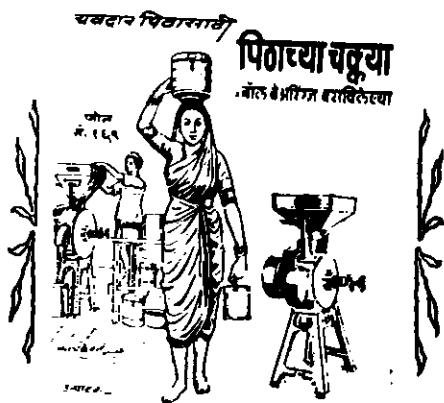 चवदार पिठासाठी
पिठाच्या चक्क्या
बॉल बेअरिंग्ज बसविलेल्या
फोन
नं. १६१